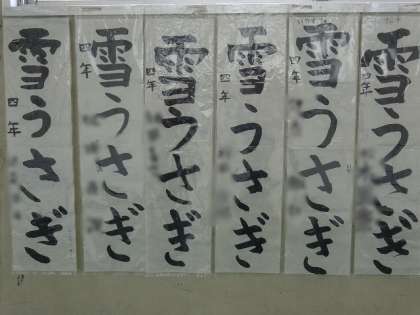 雪うさぎ
四年
雪うさぎ
四年
雪うさぎ
四年
雪うさぎ
四年
雪うさぎ
四年
雪うさぎ
四年